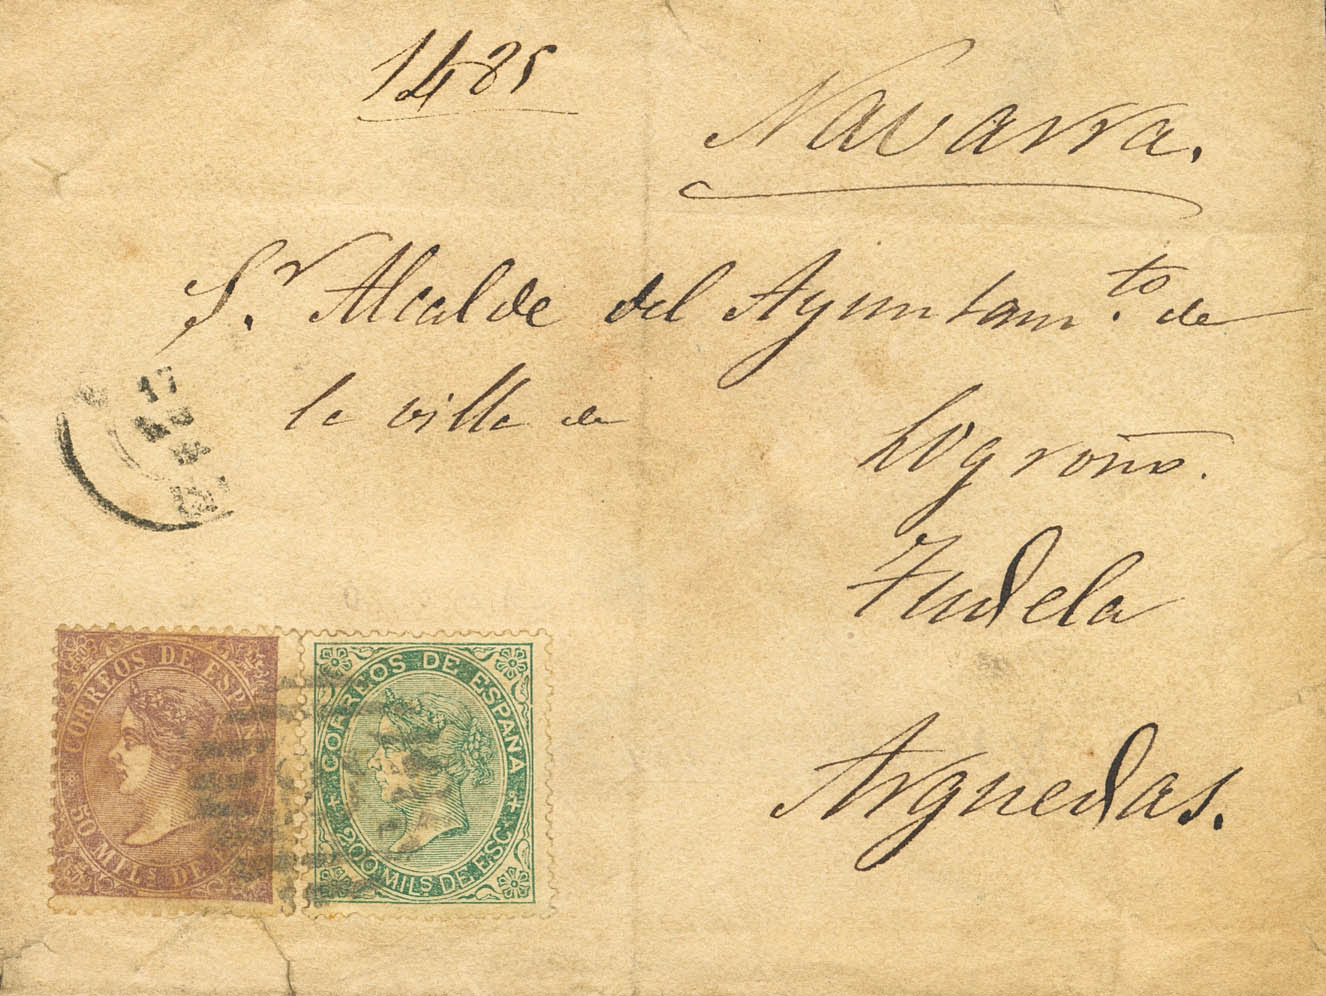 1485
Navarra.
S.r Alcalde del Ayuntam.to de
la villa de
Logroño.
Tudela
Arguedas.
17
CORREOS DE ESP
50 MIL.S DE
CORREOS DE ESPAÑA
200 MIL.S DE ESC.